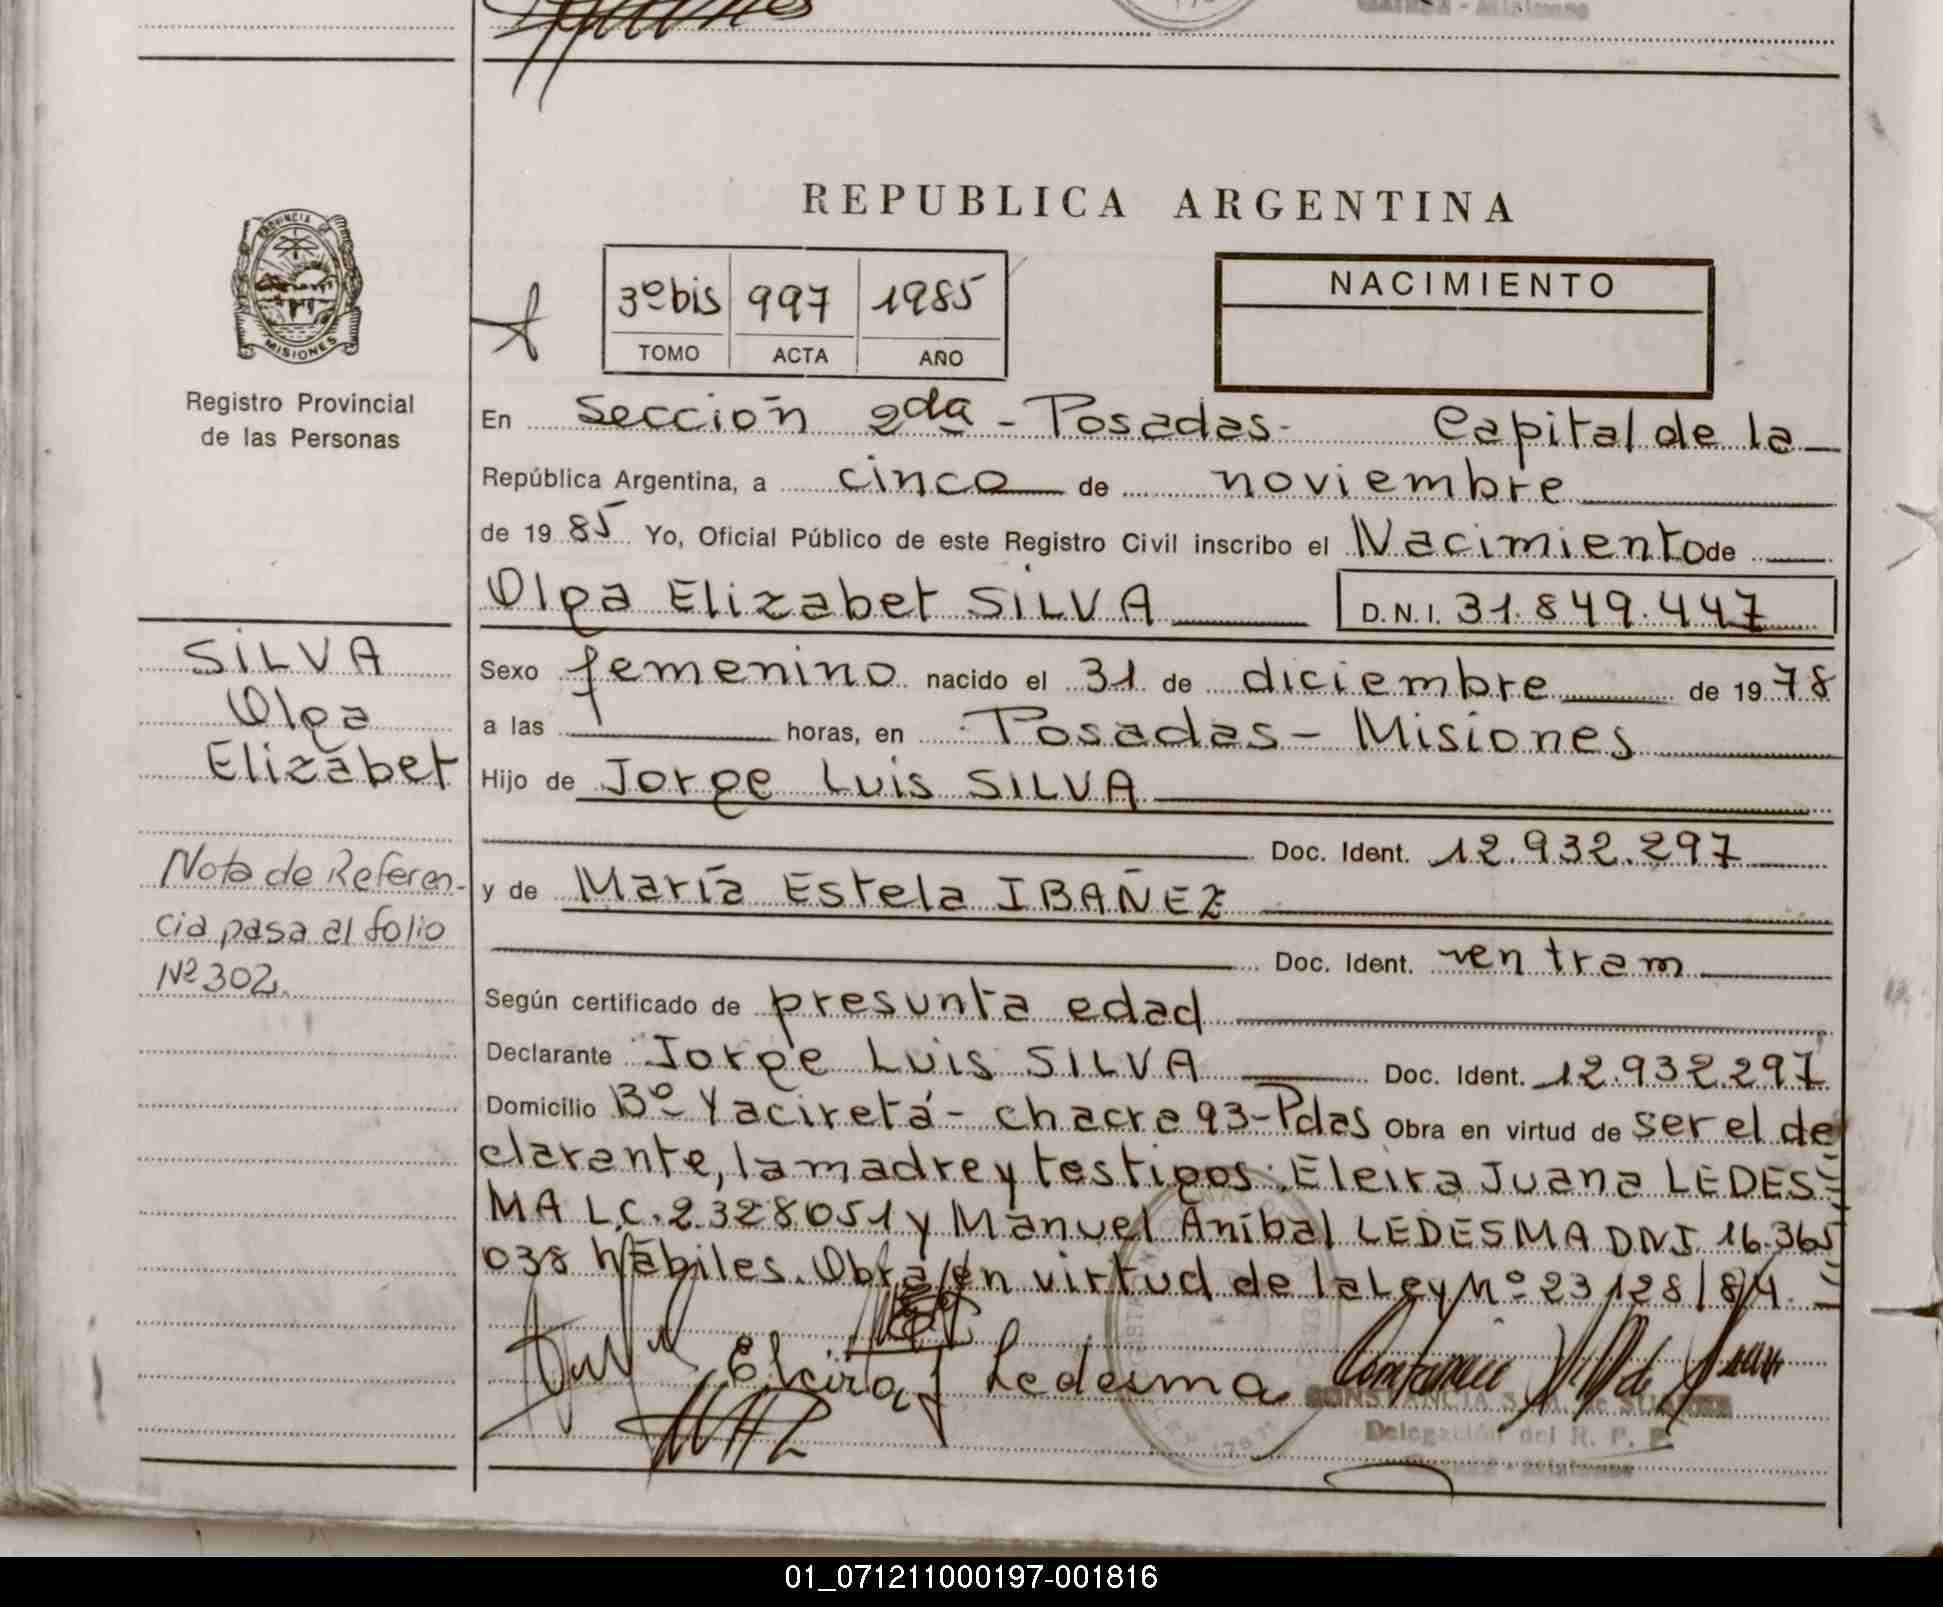 REPUBLICA ARGENTINA
PROVINCIA DE
MISIONES
Registro Provincial
de las Personas
3º bis 997 1985
TOMO ACTA AÑO
NACIMIENTO
En Sección 2da - Posadas - Capital de la
República Argentina, a cinco de noviembre
de 1985 Yo, Oficial Público de este Registro Civil inscribo el Nacimiento de
Olga Elizabet SILVA D.N.I. 31.849.447
Sexo femenino nacido el 31 de diciembre de 1978
a las horas, en Posadas - Misiones
Hijo de Jorge Luis SILVA
Doc. Ident. 12.932.297
y de María Estela IBAÑEZ
Doc. Ident. en tram
Según certificado de presunta edad
Declarante Jorge Luis SILVA Doc. Ident. 12.932.297
Domicilio Bº Yaciretá - chacra 93 - Pdas Obra en virtud de ser el de
clarante, la madre y testigos: Elcira Juana LEDES=
MA L.C. 2.328051 y Manuel Aníbal LEDESMA DNI 16.365
038 hábiles. Obra en virtud de la Ley Nº 23128/84. =
Elcira J Ledesma
Delegación del R. P. P.
SILVA
Olga
Elizabet
Nota de Referen-
cia pasa al folio
Nº 302.
01_071211000197-001816